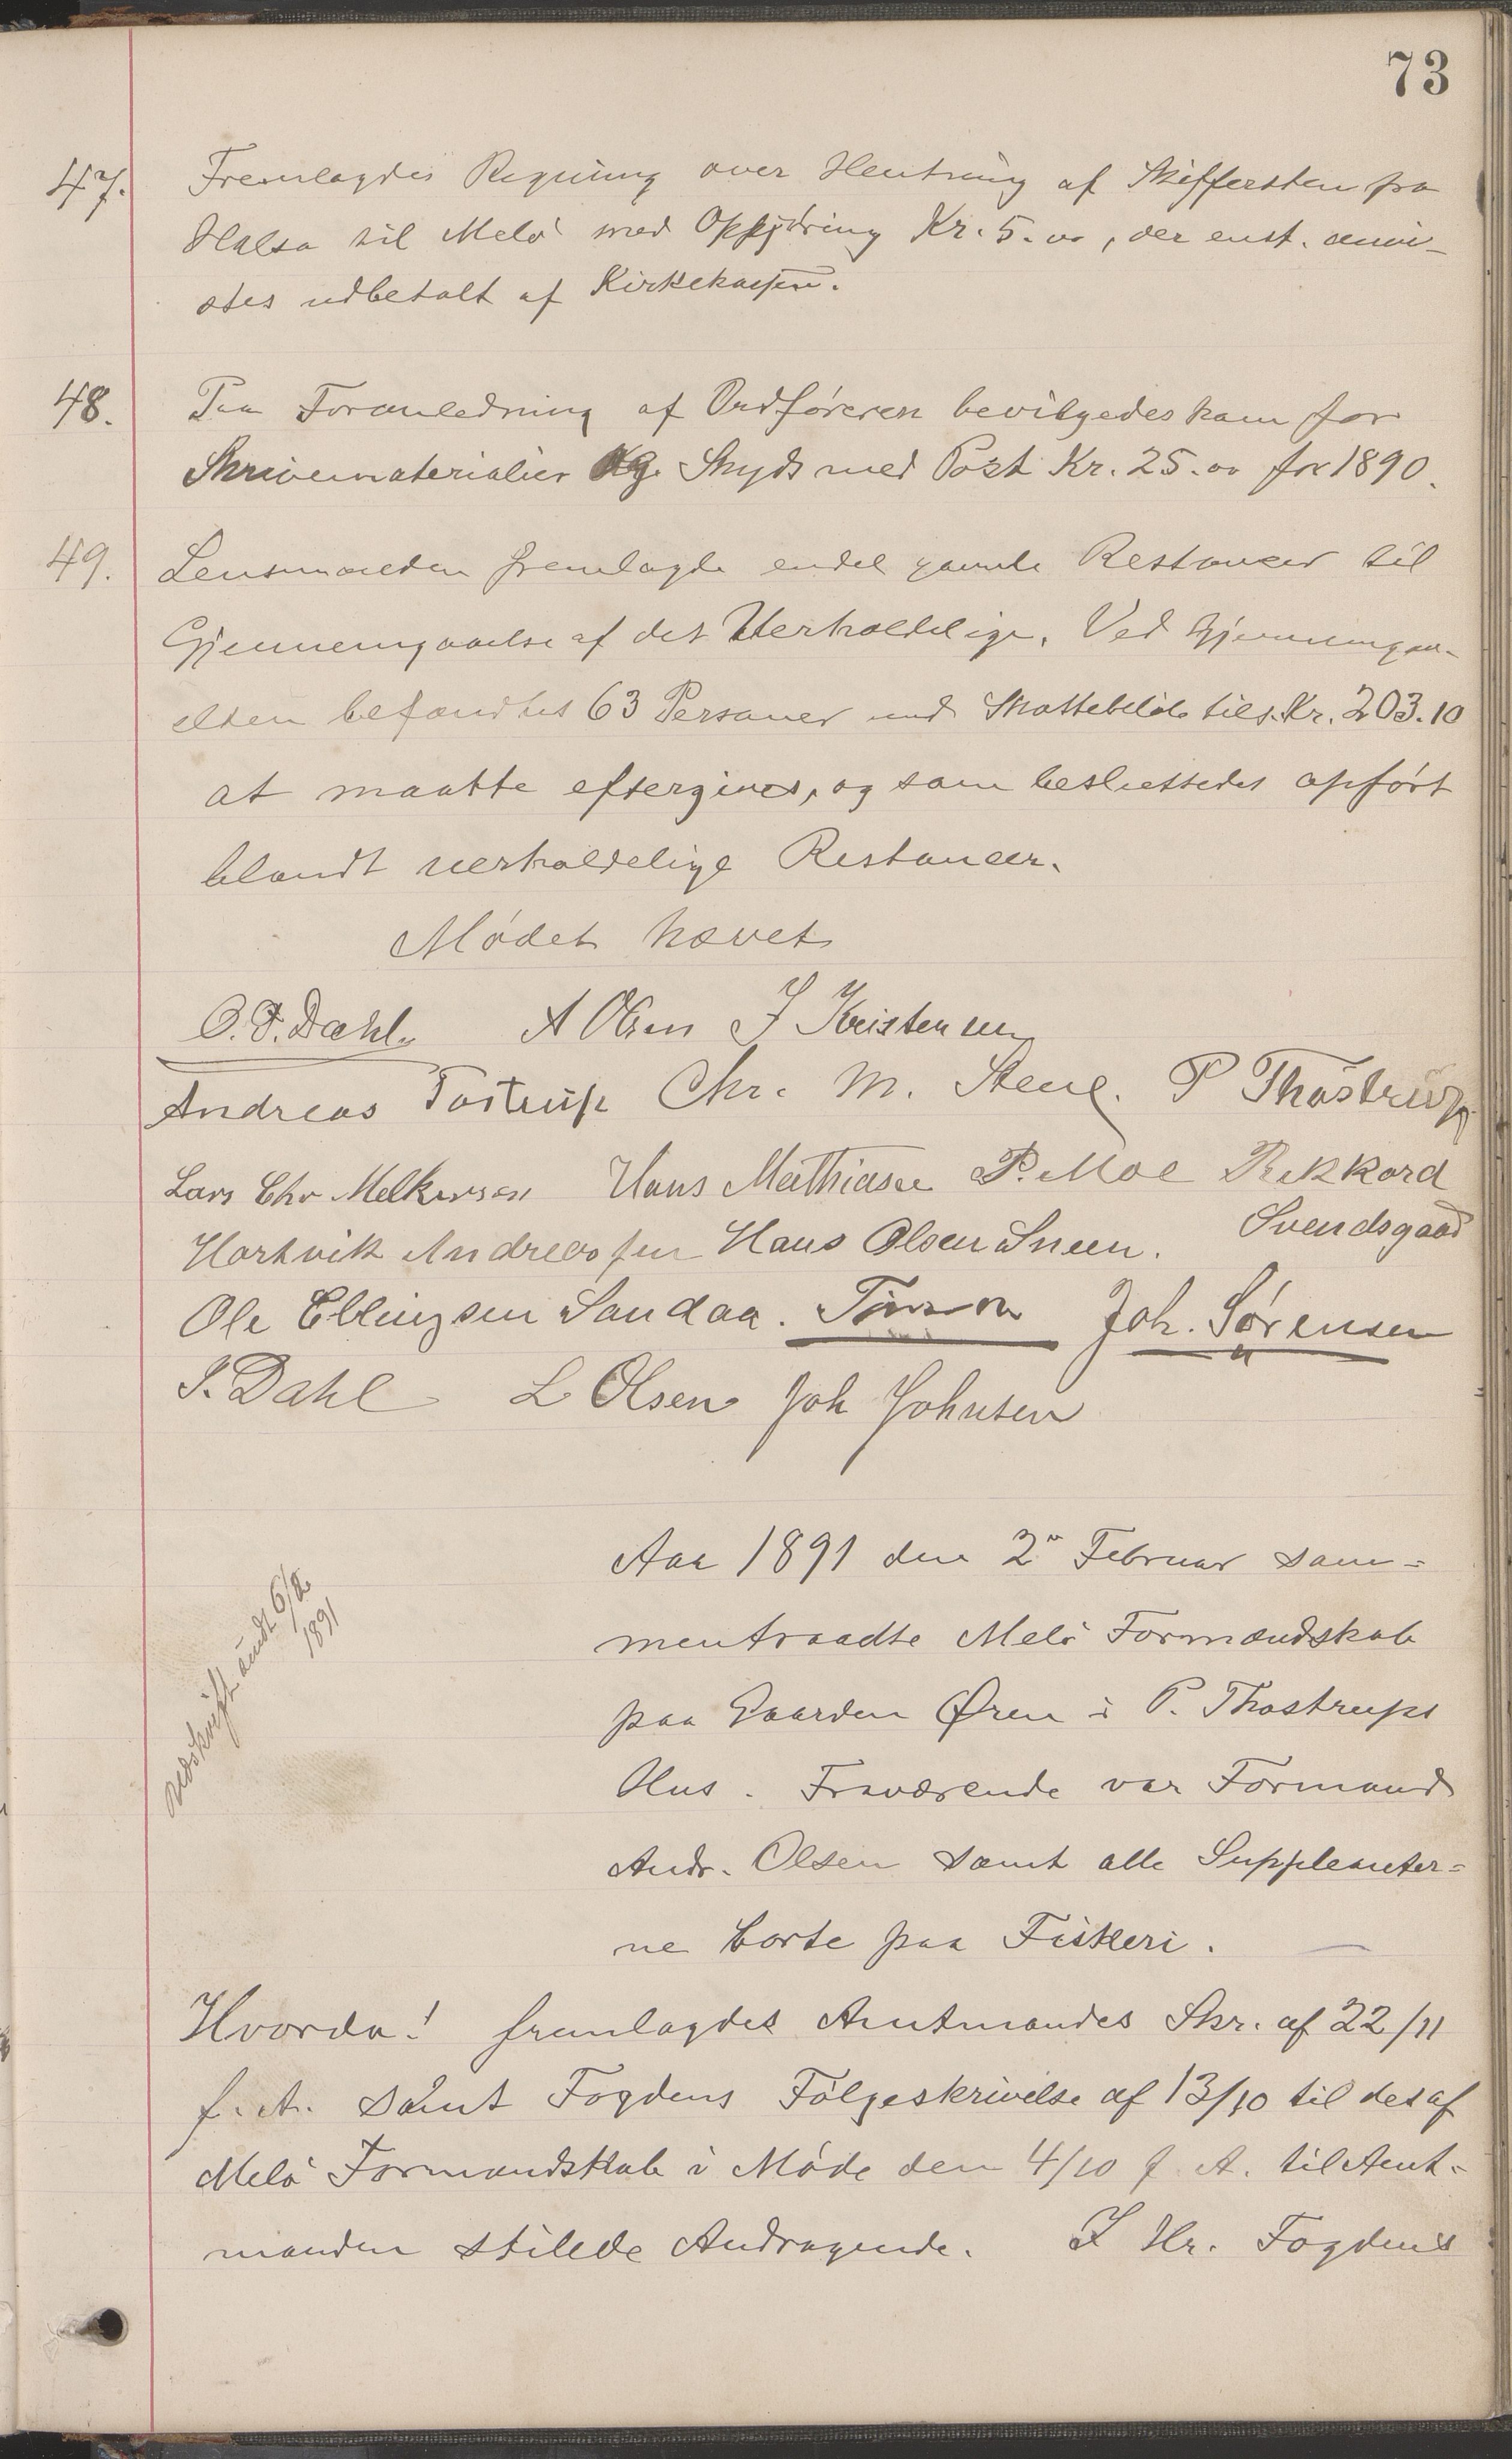 73
47. Fremlagdes Regning over Hentning af Skiffersten fra
Halsa til Melø med Opkjøring Kr. 5.00, der enst. anvi-
stes udbetalt af Kirkekassen.
48. Paa Foranledning af Ordføreren bevilgedes ham for
Skrivematerialier og Skyds med Post Kr. 25.00 for 1890.
49. Lensmanden fremlagde endel gamle Restancer til
Gjennemgaaelse af det Uerholdelige. Ved Gjennemgaa-
elsen befandtes 63 Personer med Skattebeløb tils. Kr. 203.10
at maatte eftergives, og som besluttedes opført
blandt uerholdelige Restancer.
Mødet hævet
O. P. Dahl. A Olsen J Kristensen
Andreas Tostrup Chr. M. Stene. P Thostrup
Lars Chr Melkersen Hans Mathiasen P. Moe Rikkard
Hartvik Andreassen Hans Olsen Sneen. Svendsgaard
Ole Ellingsen Sandaa. Joh. Sørensen
J. Dahl L Olsen Joh Johnsen
Aar 1891 den 2 Februar sam=
mentraadte Melø Formandskab
paa Gaarden Øren i P. Thostrups
Hus. Fraværende var Formand
Andr. Olsen samt alle Suppleanter=
ne borte paa Fiskeri.
Udskrift sendt 6/2
1891
Hvorda! fremlagdes Amtmandes Skr. af 22/11
f. A. samt Fogdens Følgeskrivelse af 13/10 til det af
Melø Formandskab i Møde den 4/10 f. A. til Amt-
manden stilede Andragende. I Hr. Fogdens